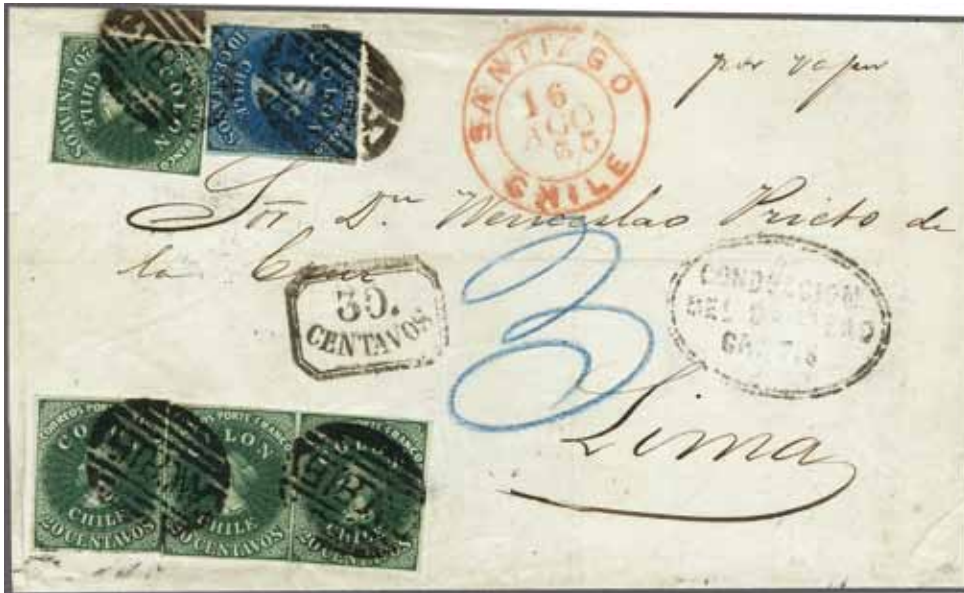 20 CENTAVOS
CHILE
COLON
10 CENTAVOS
CHILE
COLON
SANTIAGO
16
AGO
65
CHILE
por vapor
Sor Dn Wenceslao Prieto de
la Cruz
30.
CENTAVOS
3
CONDUCCION
GRATIS
Lima
CORREOS PORTE FRANCO
COLON
CHILE
20 CENTAVOS
CORREOS PORTE FRANCO
COLON
CHILE
20 CENTAVOS
PORTE FRANCO
COLON
CHILE
20 CENTAVOS